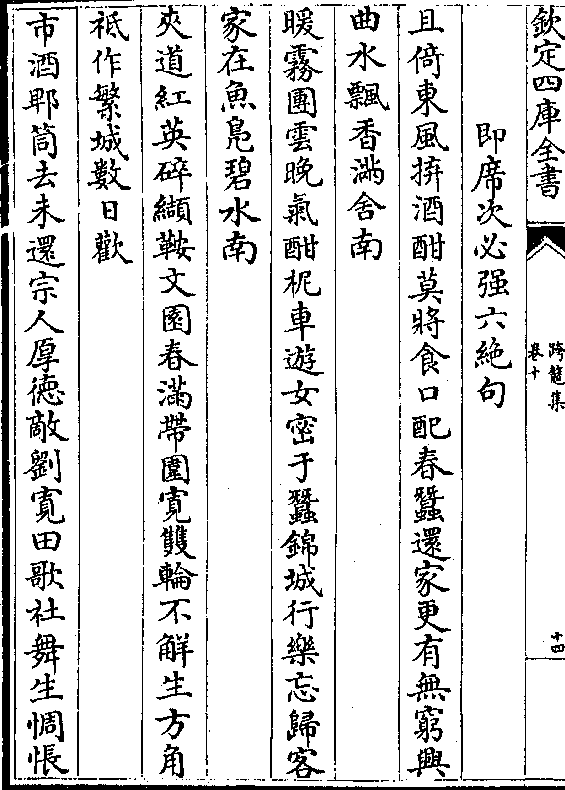 欽定四庫全書
跨鼇集
卷十
十四
即席次必强六絶句
且倚東風拚酒酣莫將食口配春蠶還家更有無窮興
曲水飄香满舍南
暖霧團雲晚氣酣柅車遊女宻于蠶錦城行樂忘歸客
家在魚鳬碧水南
夾道紅英碎纈鞍文園春滿帶圍寛雙輪不觧生方角
祗作繁城數日歡
市酒郫筒去未還宗人厚徳敵劉寛田歌社舞生惆悵